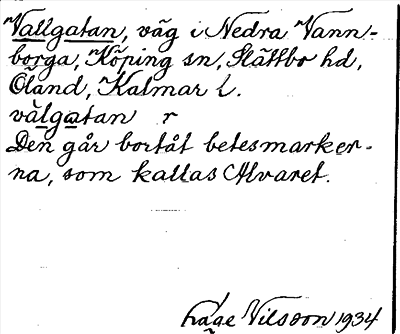 Vallgatan, väg i Nedra Vann-
borga, Köping sn, Slättbo hd,
Öland, Kalmar l.
välgatan r
Den går bortåt betesmarker-
na, som kallas Alvaret.
Nilsson 1934